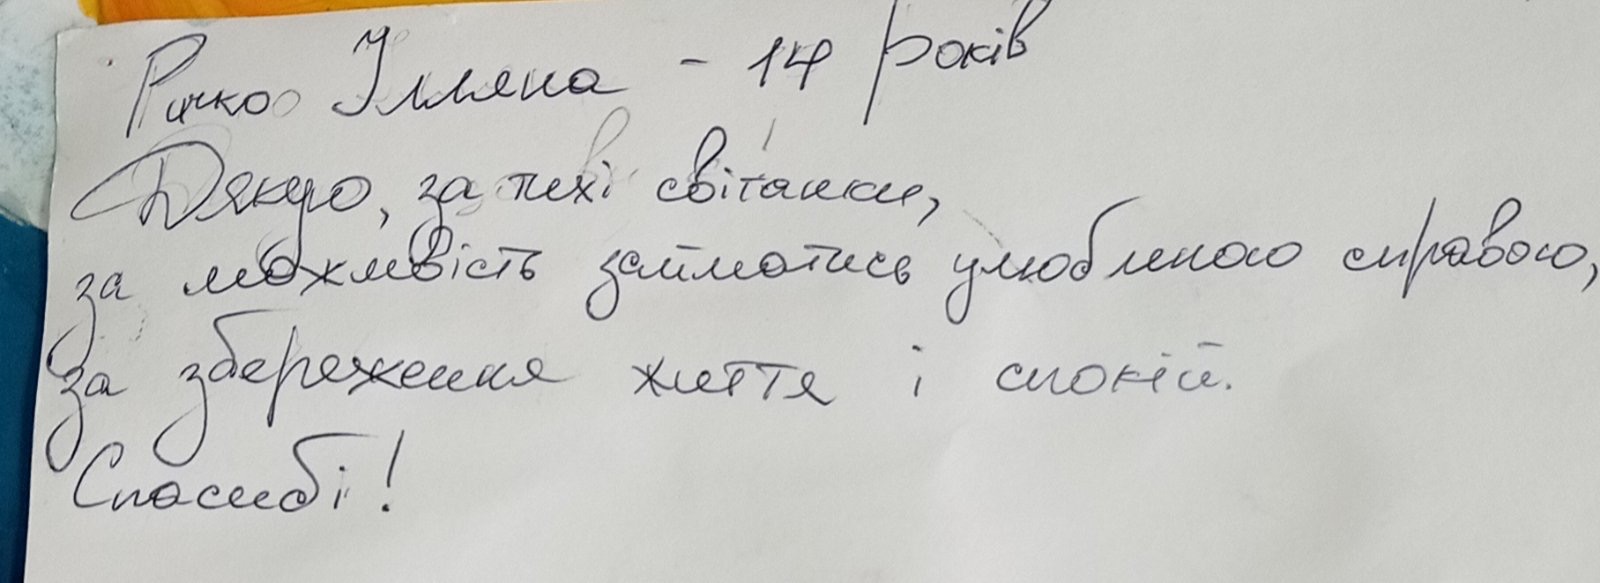 Ричко Ілляна - 14 років
Дякую, за тихі світанки,
за можливість займатись улюбленою справою,
за збереження життя і спокій.
Спасибі!